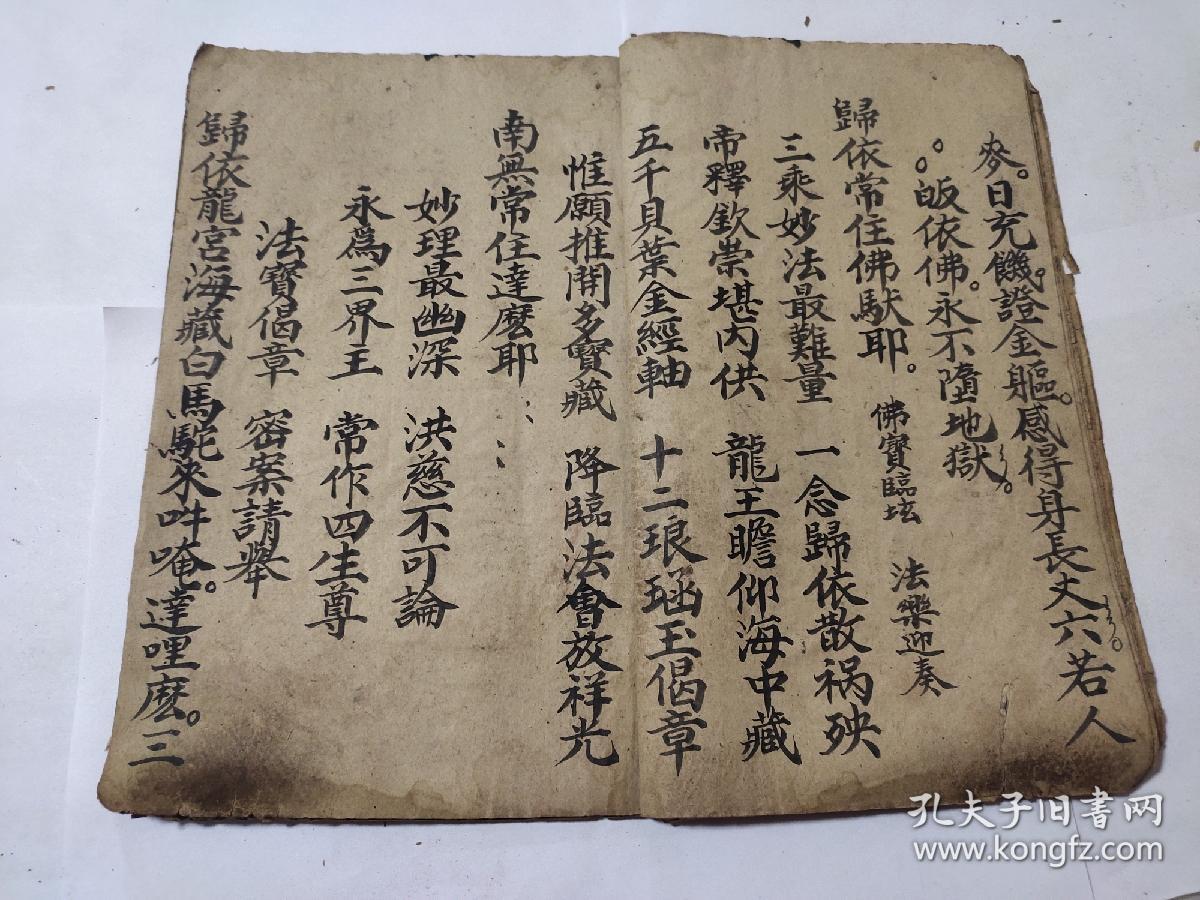 麥。日充饑。證金軀。感得身長丈六若人
皈依佛。永不墮地獄。
歸依常住佛馱耶。 佛寶臨坛 法樂迎奏
三乘妙法最難量 一念歸依散祸殃
帝釋欽崇堪内供 龍王瞻仰海中藏
五千貝葉金經軸 十二琅函玉偈章
惟願推開多寶藏 降臨法會放祥光
南無常住達麽耶
妙理最幽深 洪慈不可論
永爲三界王 常作四生尊
法寶偈章 密案請舉
歸依龍宫海藏白馬駝來吽唵。達哩麽。三
孔夫子旧书网
www.kongfz.com